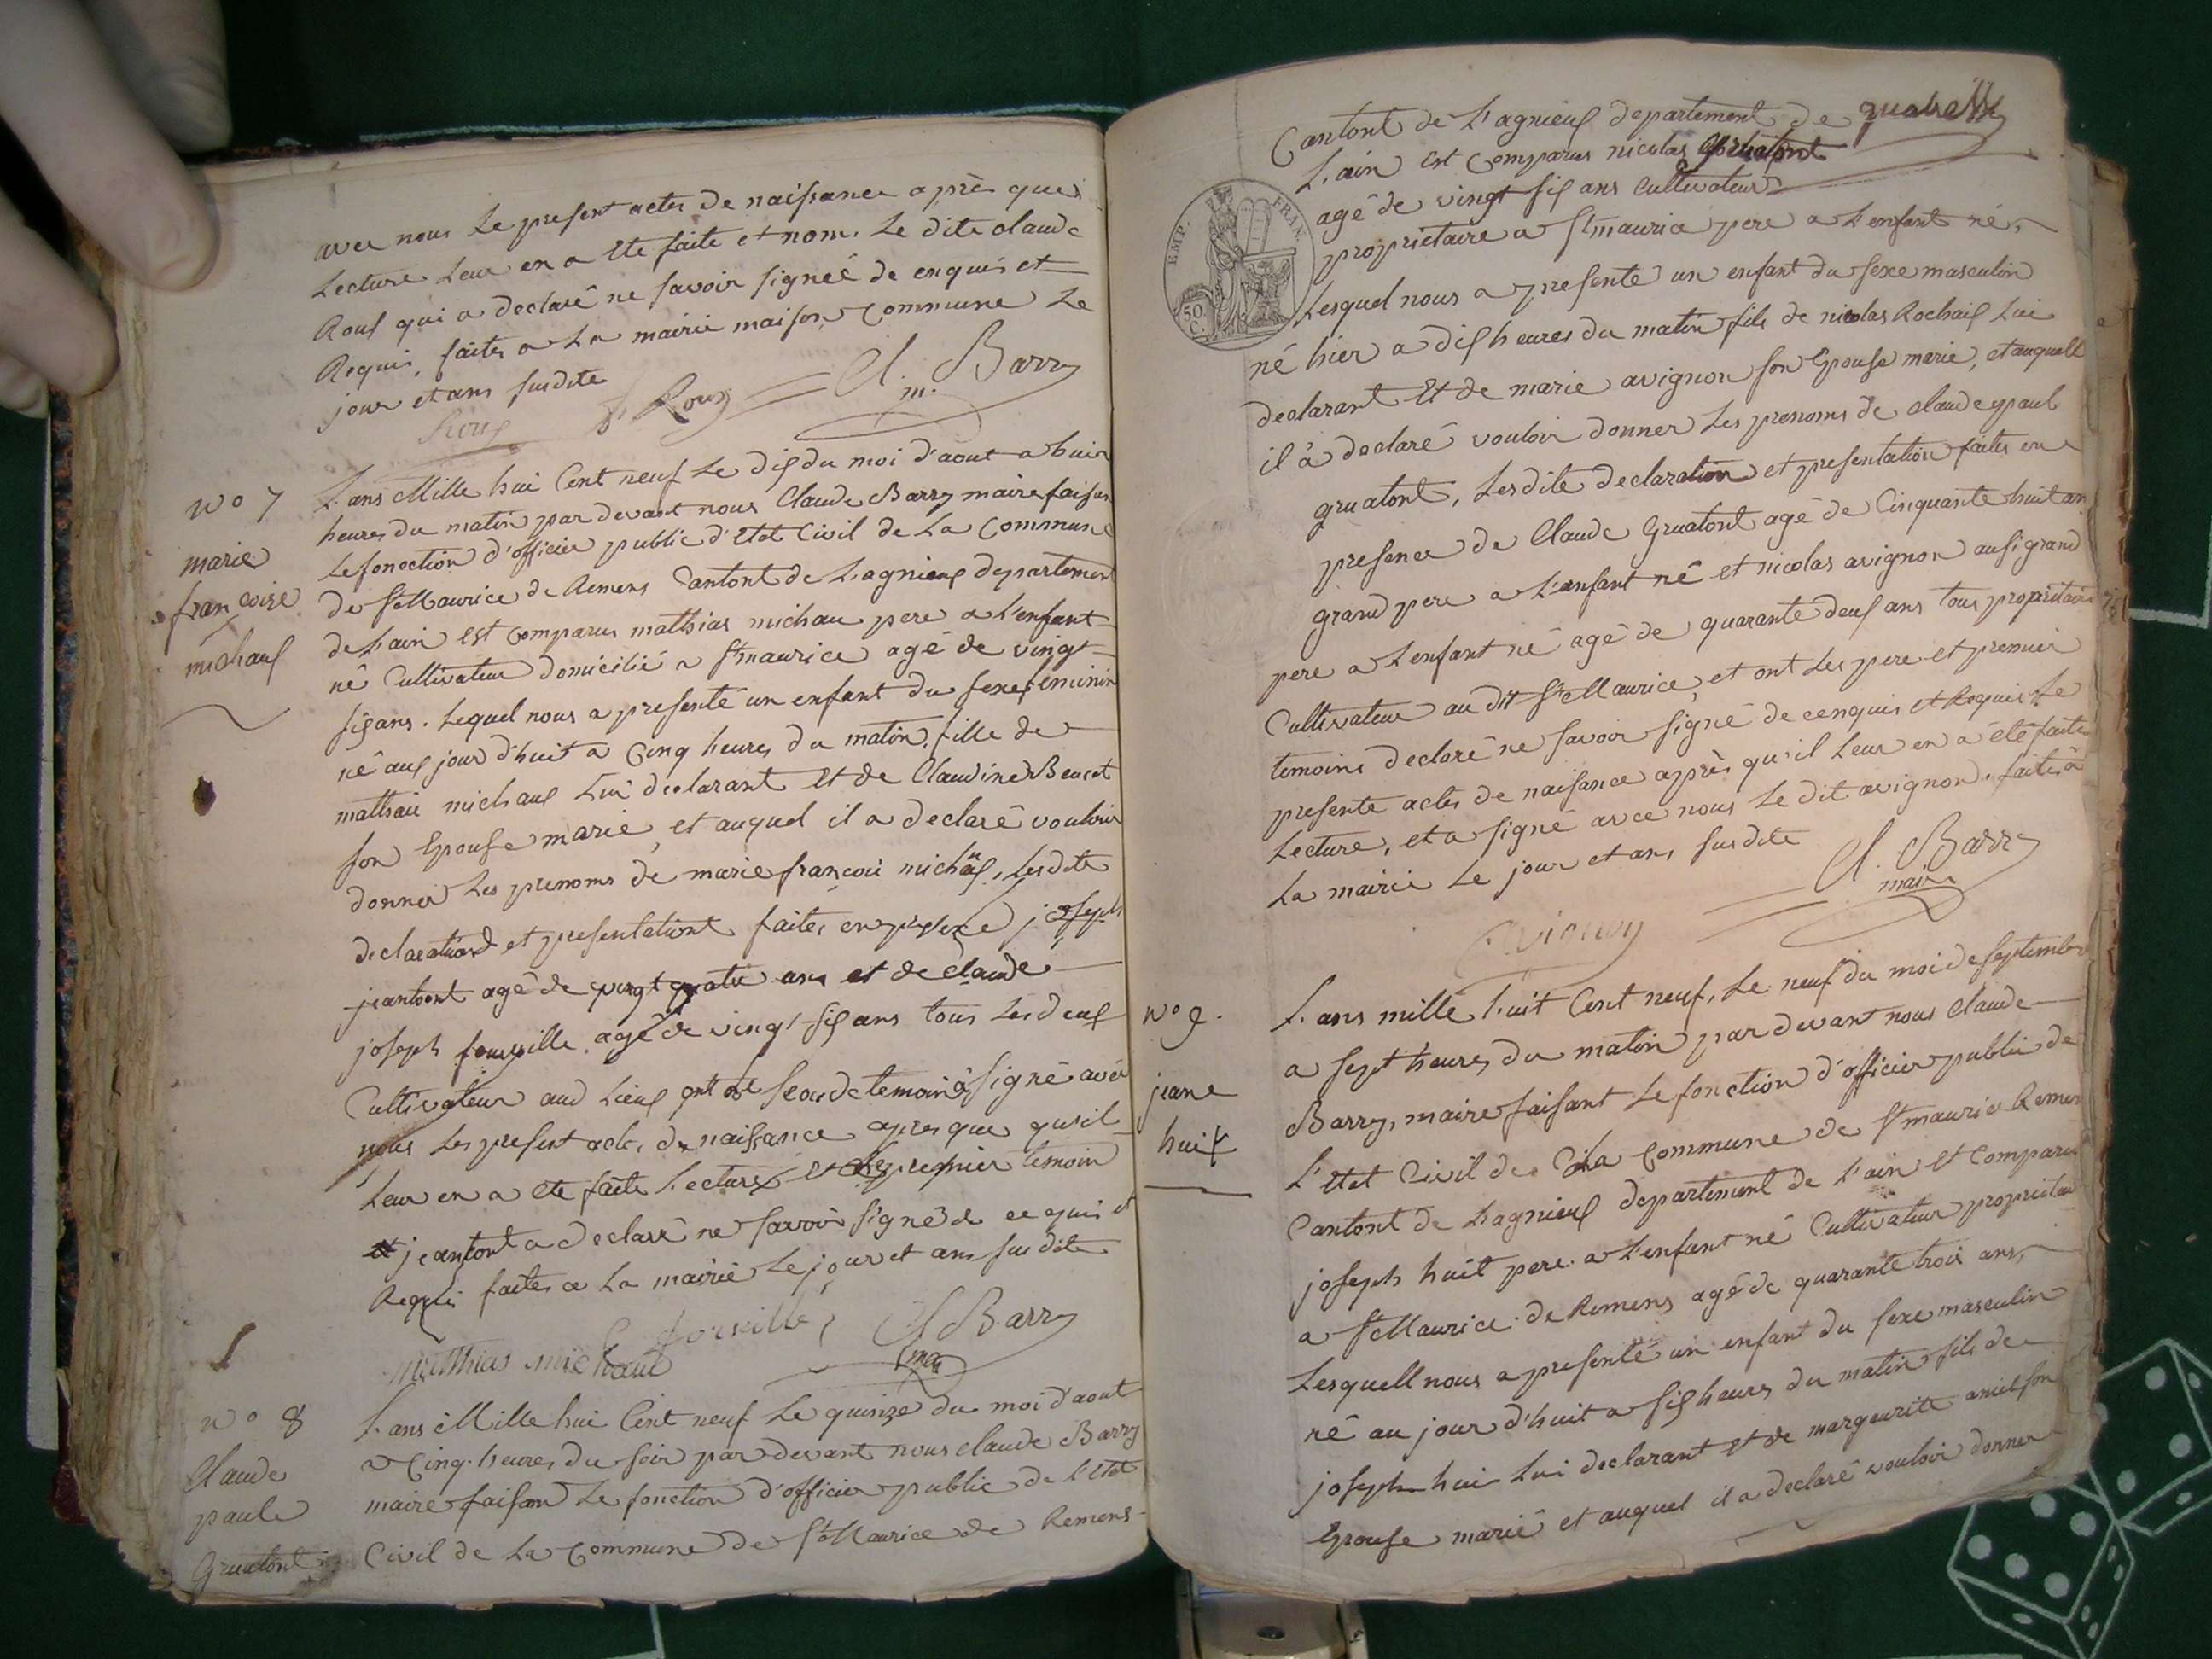 avec nous Le present actes de naissance après que
Lecture Leur en a Ete faite et nom. Le dite claude
Roux qui a declaré ne savoir signéé de enquis et
Requis, faites a La mairie maison Commune Le
jour et ans susdite
Roux Roux Cl. Barry
m.
N° 7
marie
françoise
michaux
L'ans Mille hui Cent neuf Le dix du moi d'aout a huit
heures du matin par devant nous Claude Barry maire faisan
Le fonection d'officier public d'Etat Civil de La Commune
de St Maurice de Remens Cantont de Lagnieux departement
de Lain Est Comparus mathias michau pere a L'enfant
né Cultivateur domicilié a St maurice agé de vingt
six ans. Lequel nous a presenté un enfant du sexe feminin
né aux jour d'huit a Cinq heures du matin, fille de
mathais michaux Lui declarant Et de Claudine Beucot
son Epouse marie, et auquel il a declaré vouloir
donner Les prenoms de marie françoie michax, Lesdite
declarationd et presentationt faites en presence joseph
jeantont agé de vingt quatre ans et de claude
joseph fourville agé de vingt six ans tous Les deux
Cultivateur aud Lieux ont Le second temoin a signé avec
nous Les present acte, de naissance apres que qu'il
Leur en a ete faite Lecture Et Le premier temoin
jeantont a declaré ne savoir signé de ce quis et
Requis faites a La mairie Le jour et ans susdite
Matthias michaud forville Cl Barry
ma
N° 8
Claude
paule
Gruatont
L'ans Mille hui Cent neuf Le quinze du moi d'aout
a Cinq heures du soir par devant nous claude Barry
maire faisan Le fonction d'officier public de L'Etat
Civil de La Commune de St Maurice de Remens
Cantont de L'agnieux departement de quatre
L'ain Est Comparus nicolas Gruatont
agé de vingt six ans Cultivateur
propriétaire a St maurice pere a L'enfant né,
EMP. FRAN.
50 C.
Lesquel nous a presenté un enfant du sexe masculin
né hier a dix heures du matin fils de nicolas Rochaix Lui
declarant Et de marie avignon son Epouse marie, et auquell
il à declaré vouloir donner Les prenoms de claude paul
gruatont, Lesdite declaration et presentation faites en
presence de Claude Gruatont agé de Cinquante huit an
grand pere a L'anfant né et nicolas avignon ausi grand
pere a L'enfant né agé de quarante deux ans tous propriétaire
Cultivateur au dit St Maurice, et ont Les pere et premier
temoins declaré ne savoir signé de cenquis et Requis Le
presente actes de naisance après qu'il Leur en a été faite
Lecture, et a signé avec nous Le dit avignon. faites a
La mairie Le jour et ans susdite
Avignon Cl. Barry
maire
N° 9.
jeane
huit
L'ans mille huit Cent neuf, Le neuf du moi de septembre
a sept heures du matin par devant nous Claude
Barry, maire faisant Le fonction d'officier public de
L'Etat Civil de La Commune de St maurice Remens
Cantont de Lagnieux departement de L'ain Et Comparu
joseph huit pere a L'enfant né Cultivateur propriétaire
a St Maurice de Remens agé de quarante trois ans,
Lesquell nous a presenté un enfant du sexe masculin
né au jour d'huit a six heures du matin fils de
joseph hui Lui declarant Et de margeurite amiet son
Epouse marié et auquel il a declaré vouloir donner